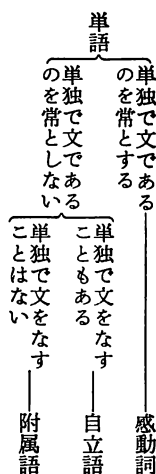 単語
単独で文である
のを常とする
単独で文である
のを常としない
単独で文をなす
こともある
単独で文をなす
ことはない
感動詞
自立語
附属語